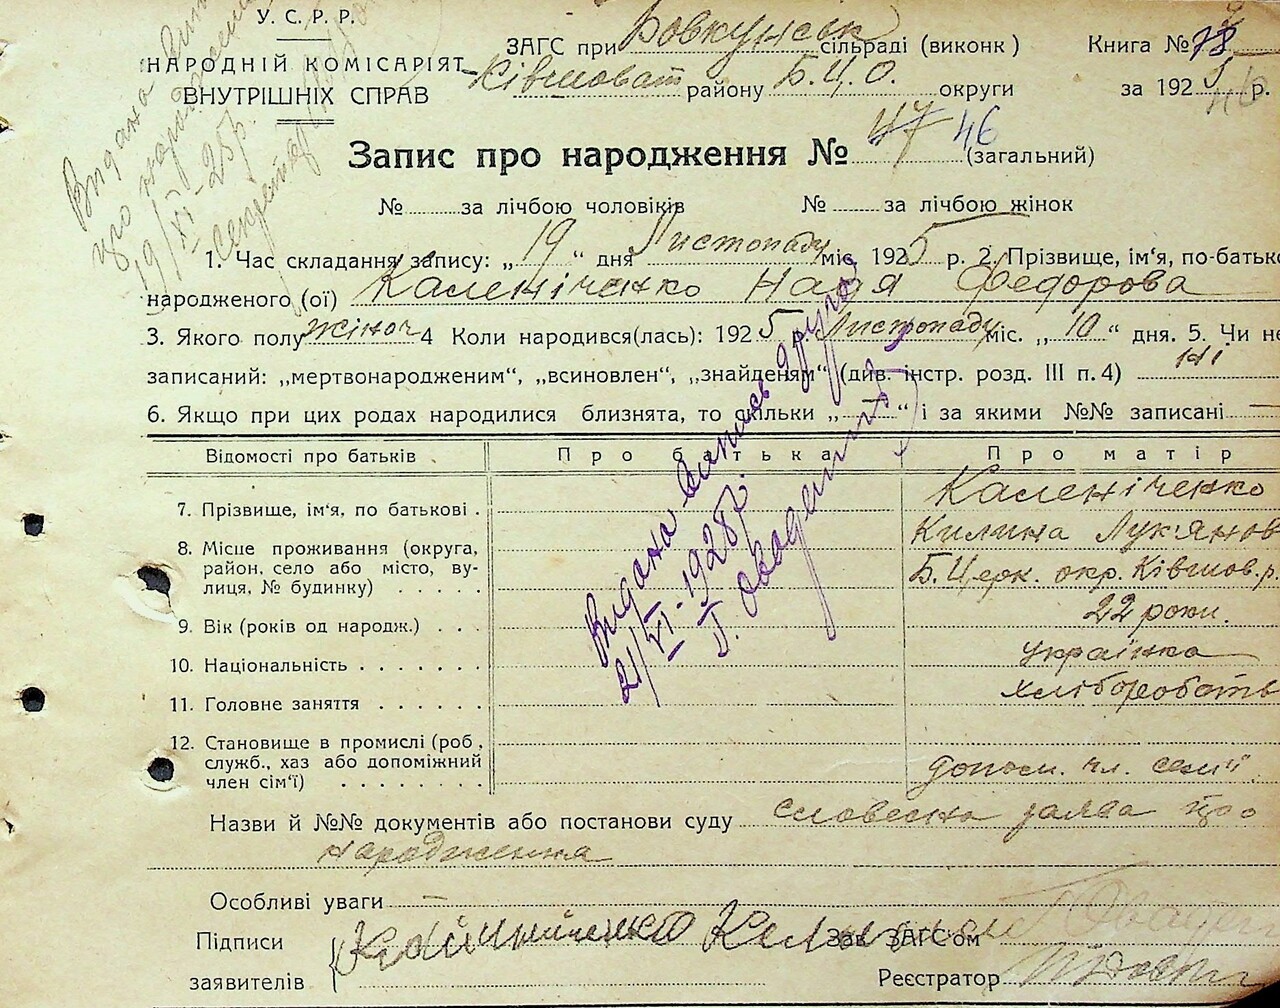 У. С. Р. Р.
НАРОДНІЙ КОМІСАРІЯТ
ВНУТРІШНІХ СПРАВ
ЗАГС при Бовкунськ сільраді (виконк) Книга № 78
Ківшоват району Б.Ц.О. округи за 1925 р.
Видана
про народження
19/XI-25р.
Запис про народження № 47 46 (загальний)
№ ........ за лічбою чоловіків № ...... за лічбою жінок
1. Час складання запису: „ 19 “ дня Листопаду міс. 1925 р. 2. Прізвище, ім'я, по-батько
народженого (ої) Каленіченко Надя Федорова
3. Якого полу жіноч 4 Коли народився(лась): 1925 р. Листопаду міс. „ 10 “ дня. 5. Чи не
записаний: „мертвонародженим“, „всиновлен“, „знайденям“ (див. інстр. розд. III п. 4) ні
6. Якщо при цих родах народилися близнята, то скільки „ — “ і за якими №№ записані —
Відомості про батьків Про батька Про матір
7. Прізвище, ім'я, по батькові . Каленіченко
Килина Лук'янов
8. Місце проживання (округа,
район, село або місто, ву-
лиця, № будинку) . . . . . Б.Церк. окр. Ківшов. р.
9. Вік (років од народж.) . . . 22 роки.
10. Національність . . . . . . . українка
11. Головне заняття . . . . . . хліборобств
12. Становище в промислі (роб.,
служб., хаз або допоміжний
член сім'ї) . . . . . . . . допом. чл. семʼї
Видана випись друга
21/XI-1928р.
Назви й №№ документів або постанови суду словесна заява про
народження
Особливі уваги
Підписи
заявителів
Зав. ЗАГС-ом
Реєстратор